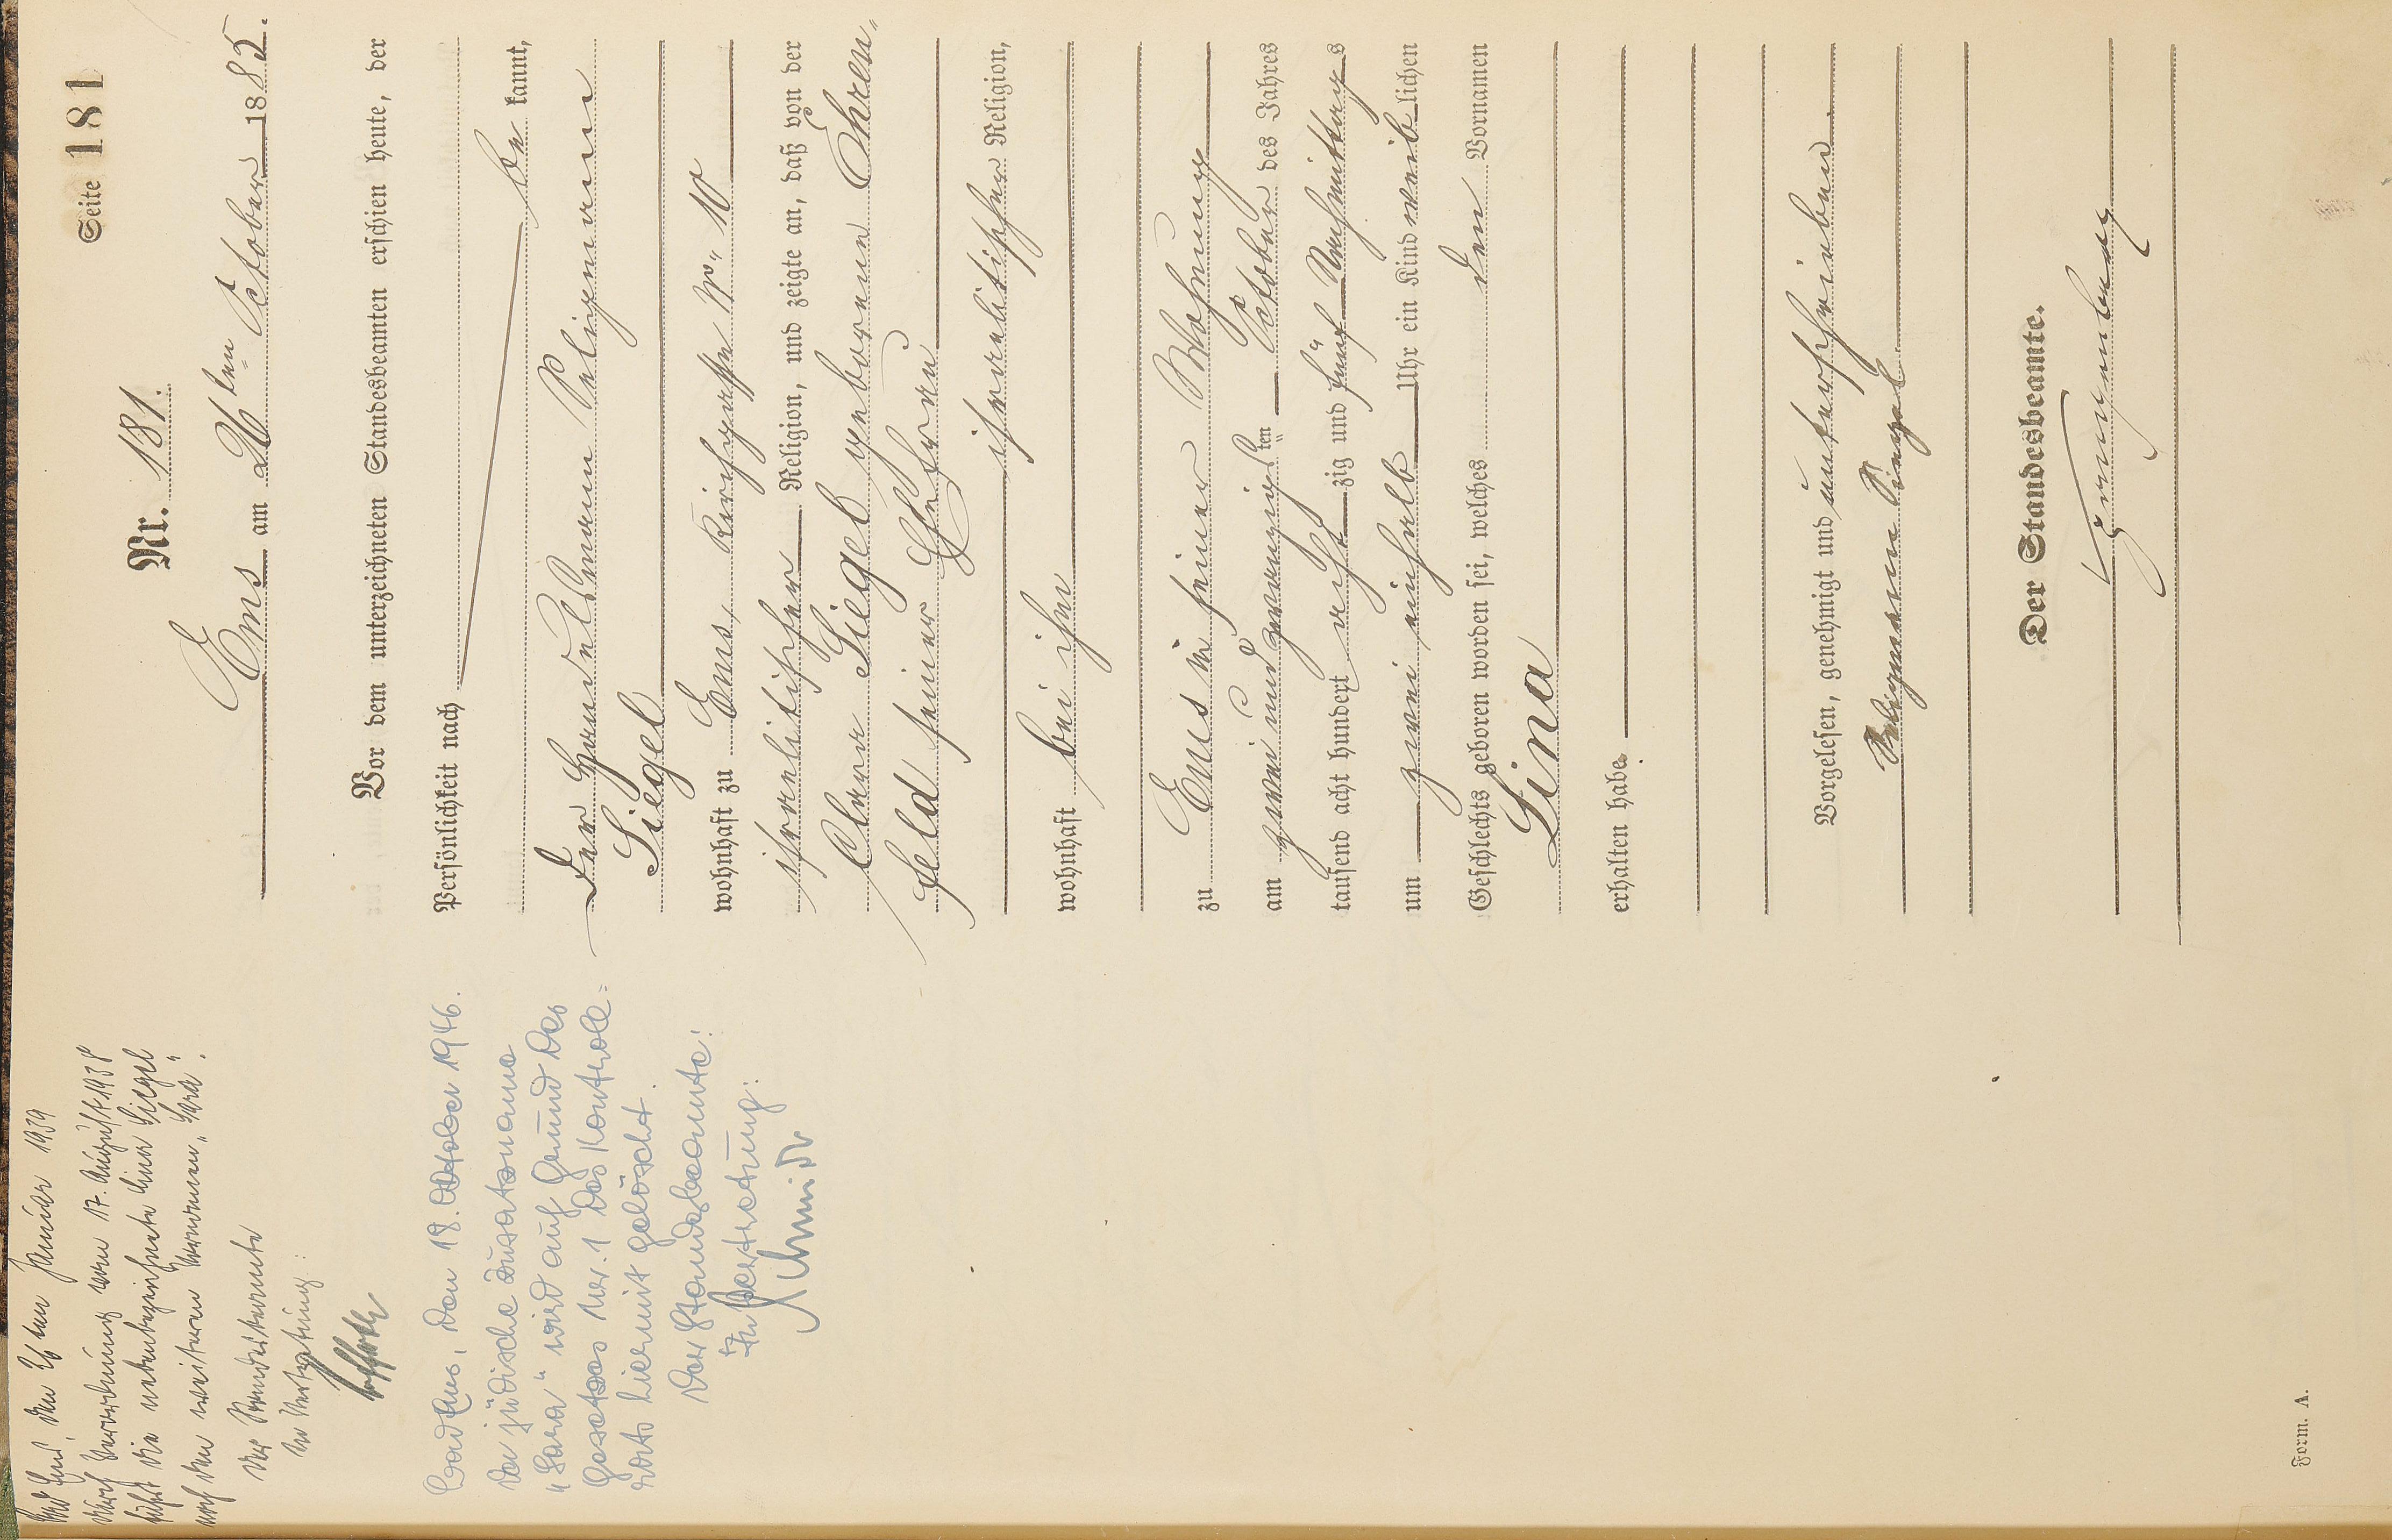 Seite 181
Nr. 181.
Ems am 26ten October 1885.
Vor dem unterzeichneten Standesbeamten erschien heute, der
Persönlichkeit nach
be kannt,
der Handelsmann Seligmann
Siegel
wohnhaft zu Ems, Kirchgasse No 10
israelitischer Religion, und zeigte an, daß von der
Clara Siegel geborenen Ehren-
feld seiner Ehefrau
israelitischer Religion,
wohnhaft bei ihm
zu Ems in seiner Wohnung
am zwei und zwanzigsten October des Jahres
tausend acht hundert acht zig und fünf Nachmittags
um zwei einhalb Uhr ein Kind weib lichen
Geschlechts geboren worden sei, welches den Vornamen
Lina
erhalten habe.
Vorgelesen, genehmigt und unterschrieben.
Seligmann Siegel.
Der Standesbeamte.
Bad Ems, den 26ten Januar 1939
Durch Verordnung vom 17. August 1938
führt die nebenbezeichnete Lina Siegel
noch den weiteren Vornamen „Sara".
Der Standesbeamte
In Vertretung:
Bad Ems, den 18. Oktober 1946.
Der jüdische Zusatzname
„Sara" wird auf Grund des
Gesetzes Nr. 1 des Kontroll-
rats hiermit gelöscht.
Der Standesbeamte:
In Vertretung:
Schmidt
Form. A.